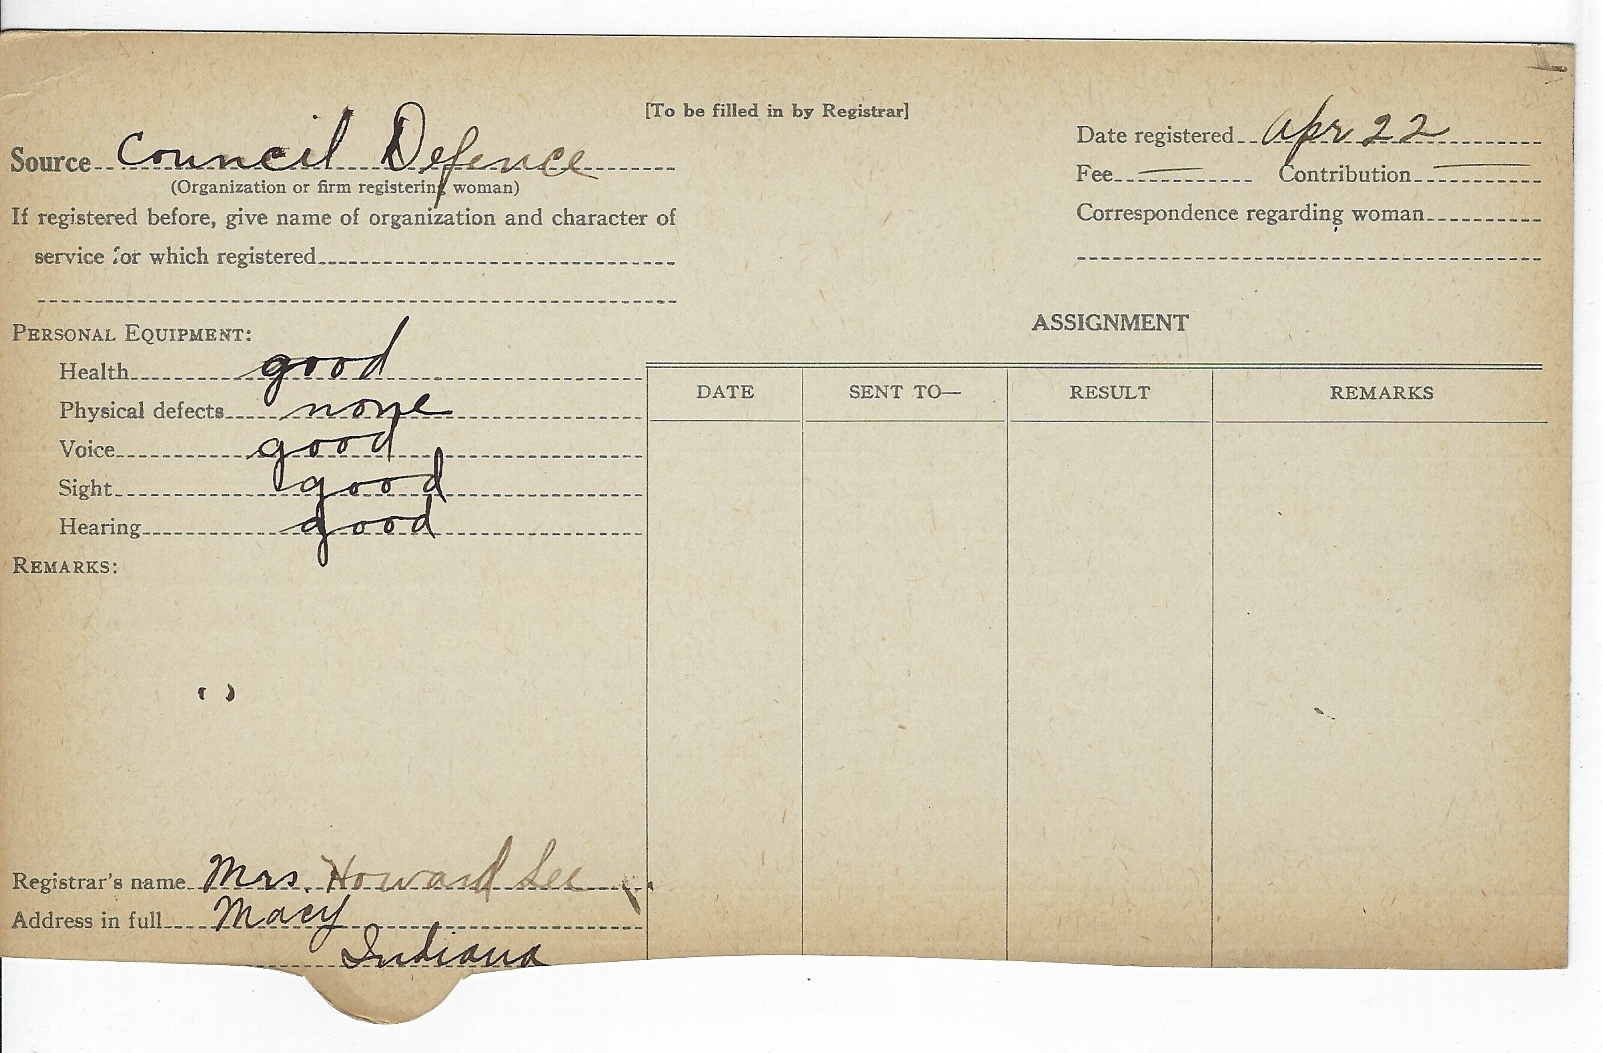 [To be filled in by Registrar]
Source Council Defence
(Organization or firm registering woman)
If registered before, give name of organization and character of
service for which registered
Date registered Apr 22
Fee — Contribution —
Correspondence regarding woman
PERSONAL EQUIPMENT:
Health good
Physical defects none
Voice good
Sight good
Hearing good
REMARKS:
Registrar's name Mrs. Howard Lee
Address in full Macy
Indiana
ASSIGNMENT
DATE SENT TO— RESULT REMARKS